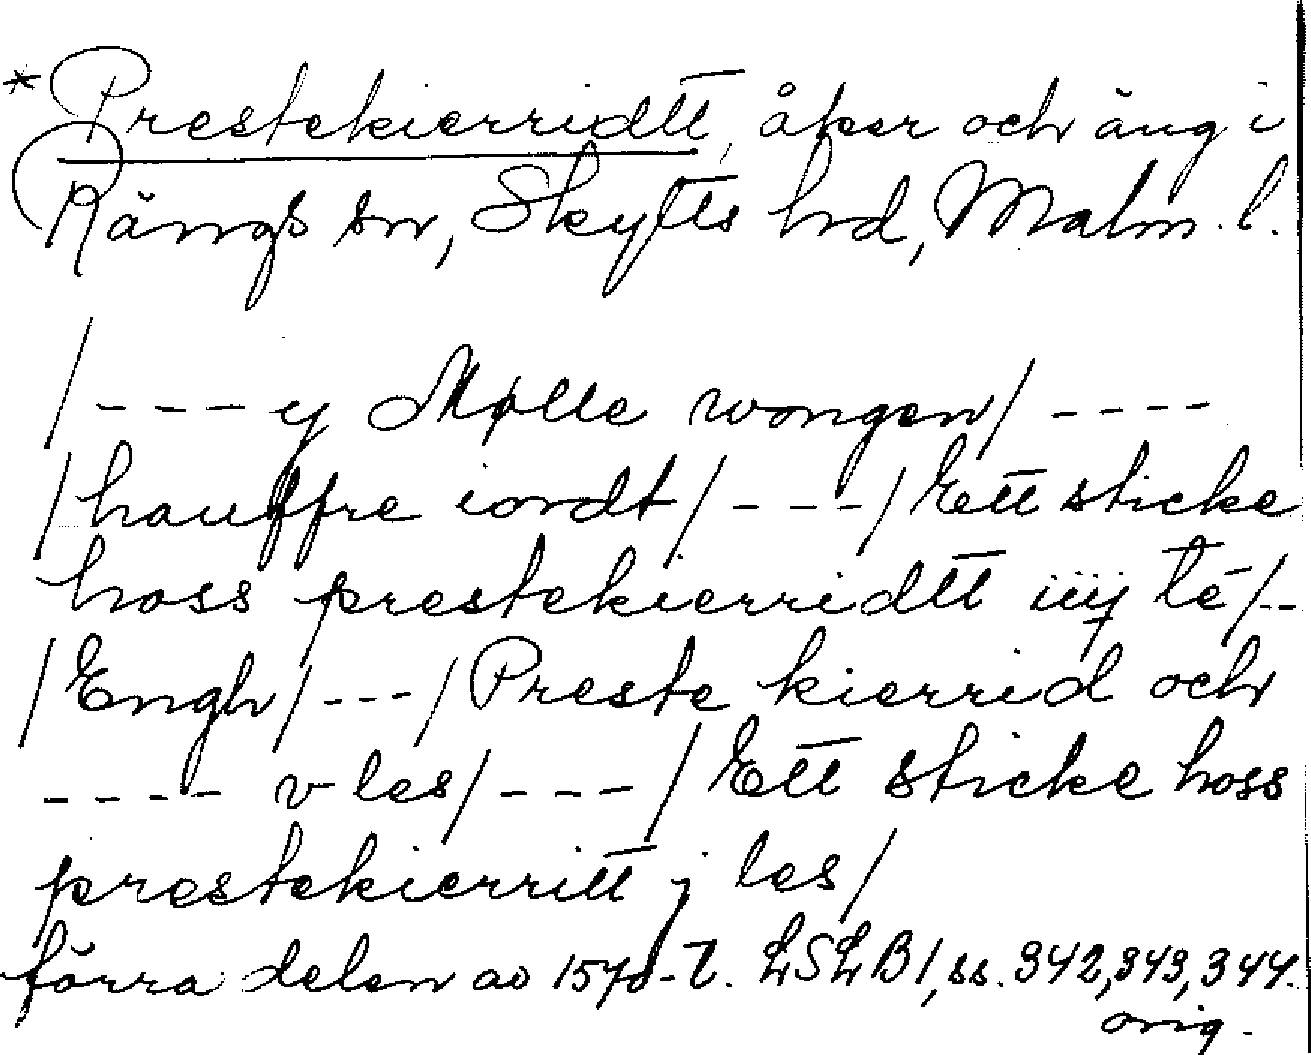 * Prestekierridtt, åker och äng i
Rängs sn, Skytts hd, Malm. l.
/---y Mølle wongen/----
/hauffre iordt/---/Ett sticke
hoss prestekierridtt iiij te/--
/Engh/---/Preste kierrid och
---- v les/---/Ett sticke hoss
prestekierritt j les/
förra delen av 1570-t. LSLB1, ss. 342, 343, 344.
orig.